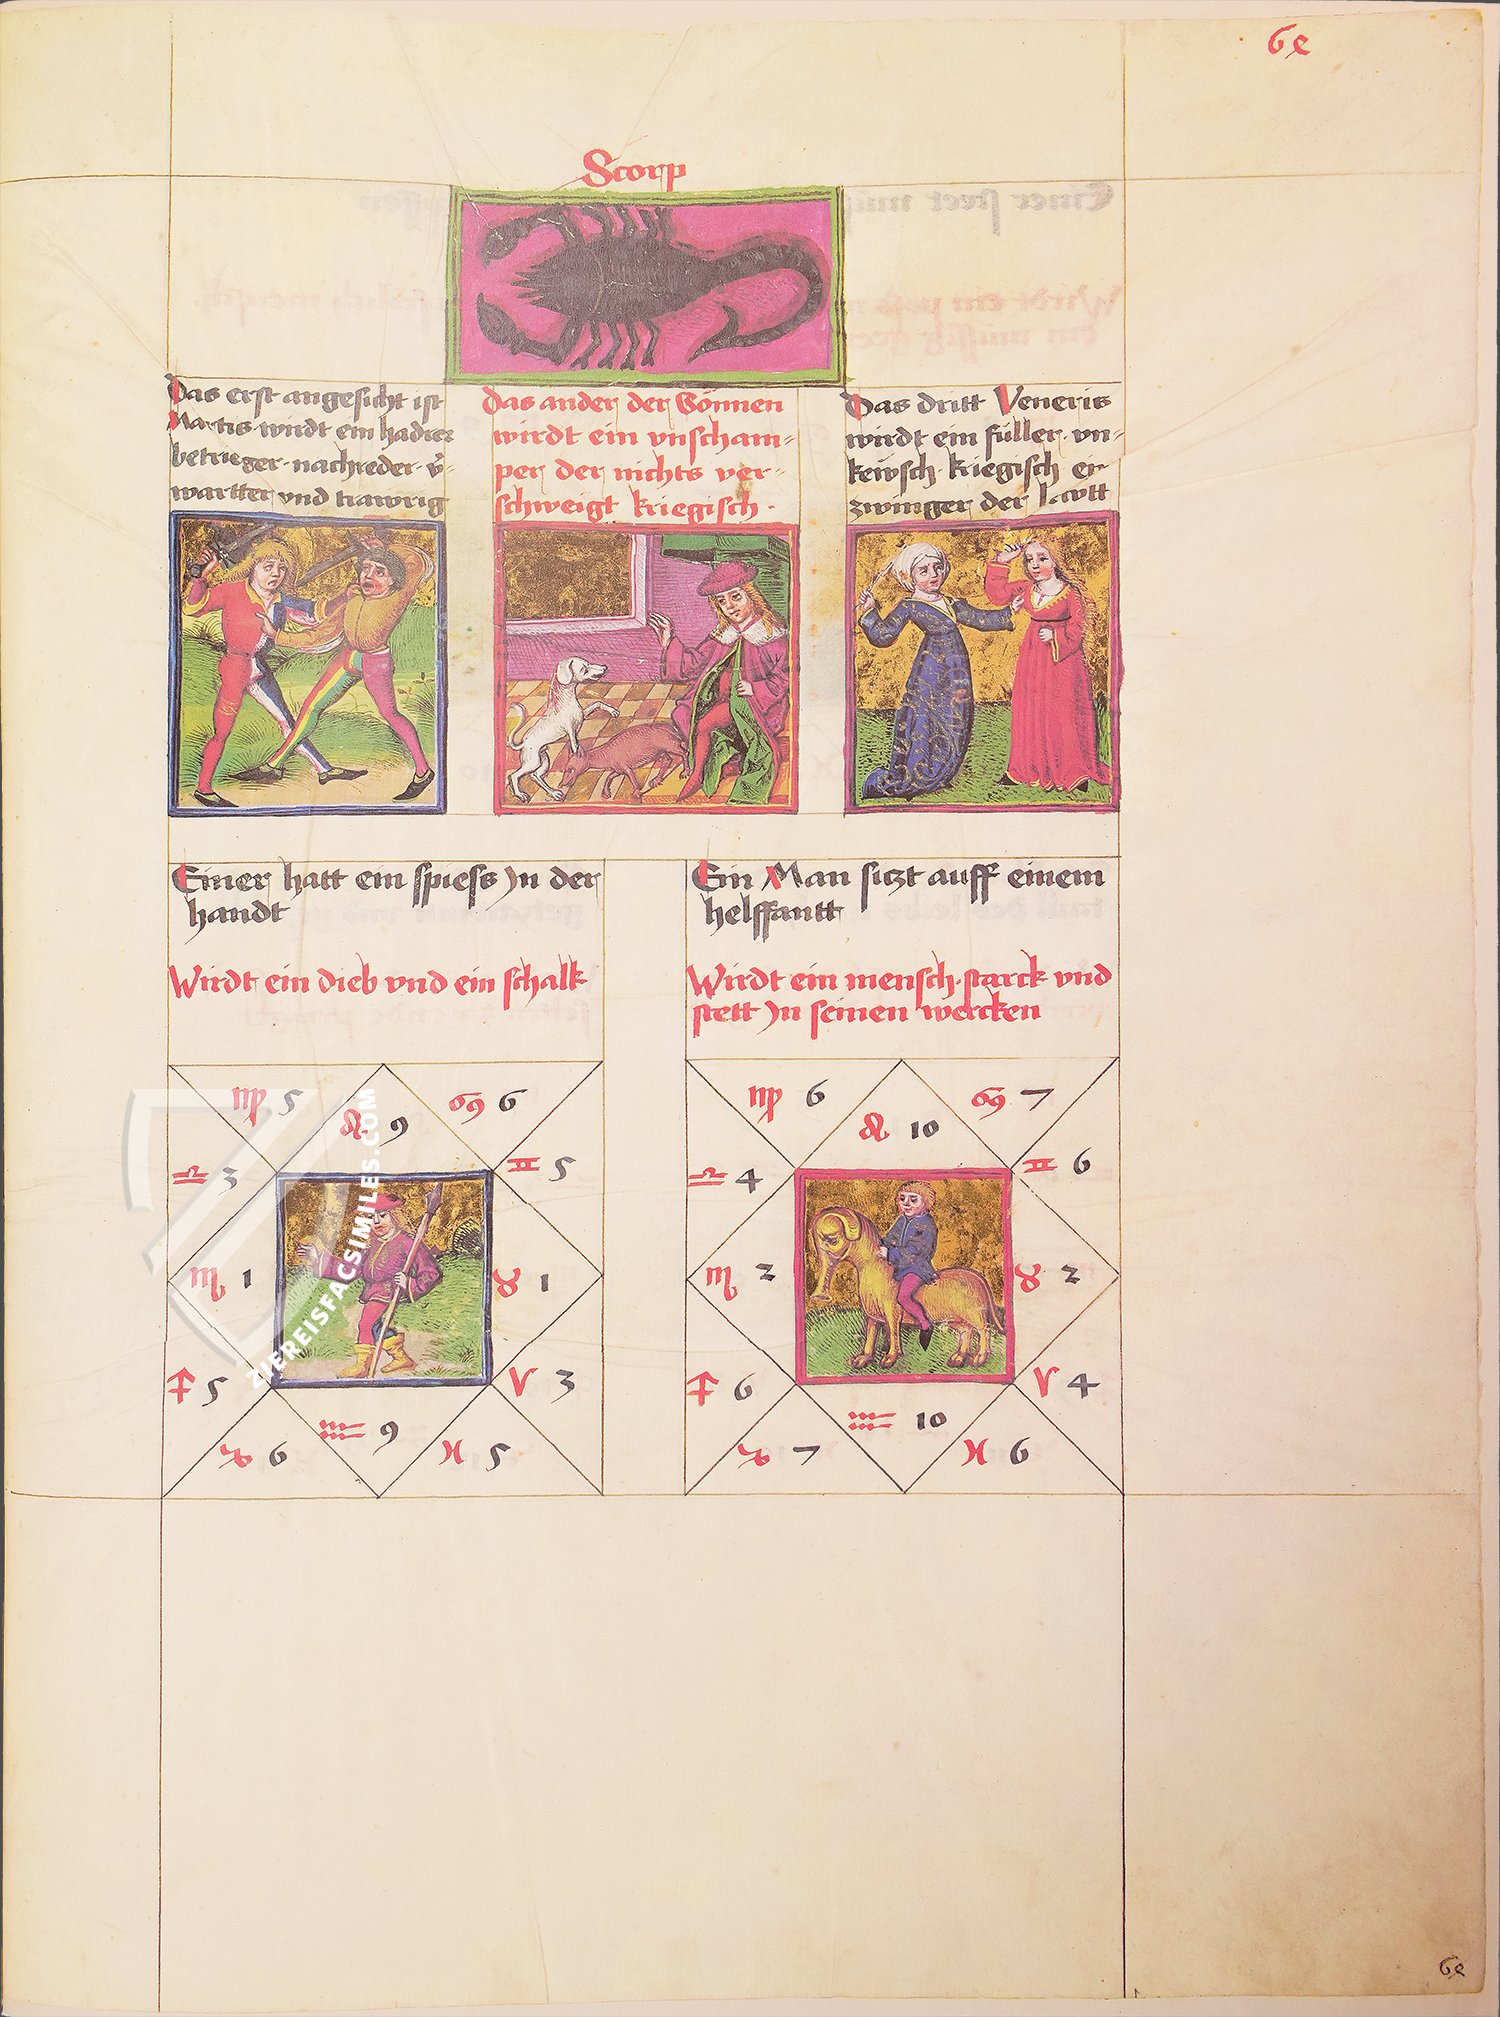 6e
Scorp
Das erst angesicht ist
Martis wirdt ein hadrer
betrieger · nachreder · v̈-
wartter vnd trawrig
das ander der Sönnen
wirdt ein vnscham-
per der nichts ver-
schweigt kriegisch ·
Das dritt Veneris
wirdt ein füller · vn-
kewsch · kriegisch er
zwinger der lawtt
Einer hatt ein spiess Jn der
handt
Wirdt ein dieb vnd ein schalk
Ein Man siczt auff einem
helffantt
Wirdt ein mensch · starck vnd
stett Jn seinen wercken
♍ 5
♌ 9
♋ 6
♎ 3
♊ 5
♏ 1
♉ 1
♐ 5
♈ 3
♑ 6
♒ 9
♓ 5
♍ 6
♌ 10
♋ 7
♎ 4
♊ 6
♏ 2
♉ 2
♐ 6
♈ 4
♑ 7
♒ 10
♓ 6
ZIEREISFACSIMILES.COM
6e